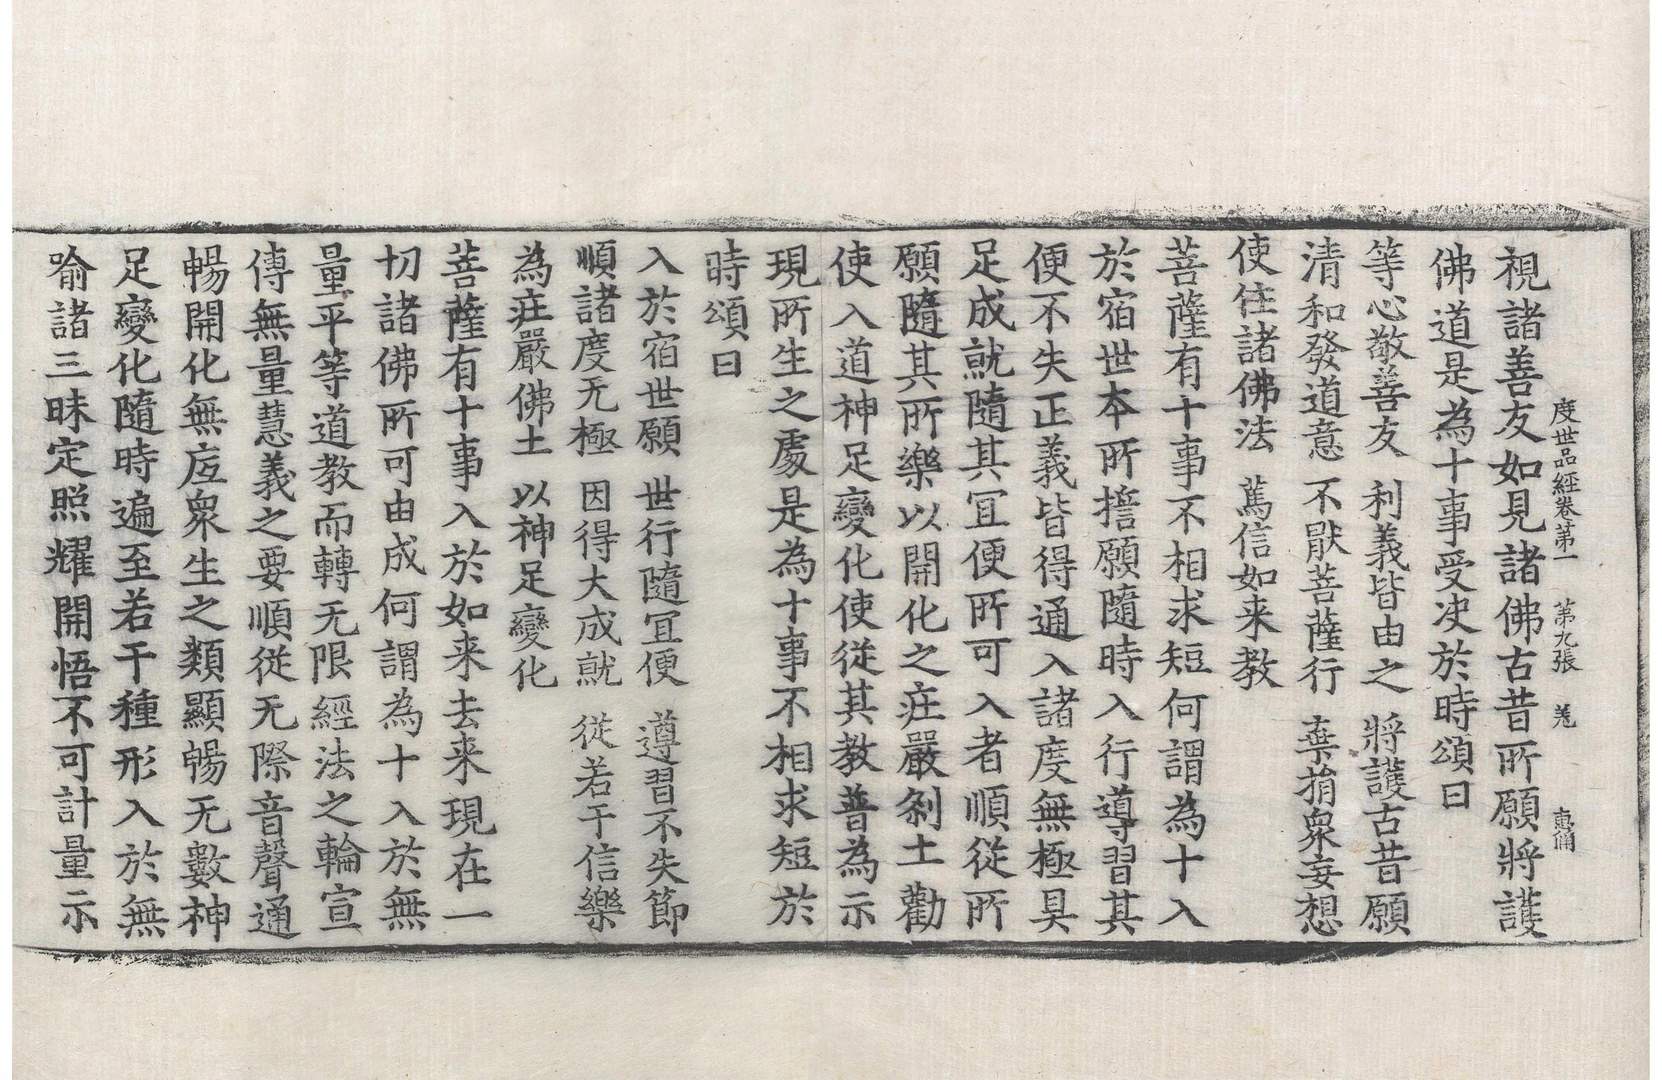 度世品經卷第一　第九張　羌　惠俑
視諸善友如見諸佛古昔所願將護
佛道是為十事受決於時頌曰
等心敬善友　利義皆由之　將護古昔願
清和發道意　不猒菩薩行　棄捐衆妄想
使住諸佛法　篤信如来教
菩薩有十事不相求短何謂為十入
於宿世本所擔願隨時入行導習其
便不失正義皆得通入諸度無極具
足成就隨其冝便所可入者順從所
願隨其所樂以開化之庄嚴剎土勸
使入道神足變化使從其教普為示
現所生之處是為十事不相求短於
時頌曰
入於宿世願　世行隨冝便　遵習不失節
順諸度无極　因得大成就　從若干信樂
為庄嚴佛土　以神足變化
菩薩有十事入於如来去来現在一
切諸佛所可由成何謂為十入於無
量平等道教而轉无限經法之輪宣
傳無量慧義之要順從无際音聲通
暢開化無㡳衆生之類顯暢无數神
足變化隨時遍至若干種形入於無
喻諸三昧定照耀開悟不可計量示